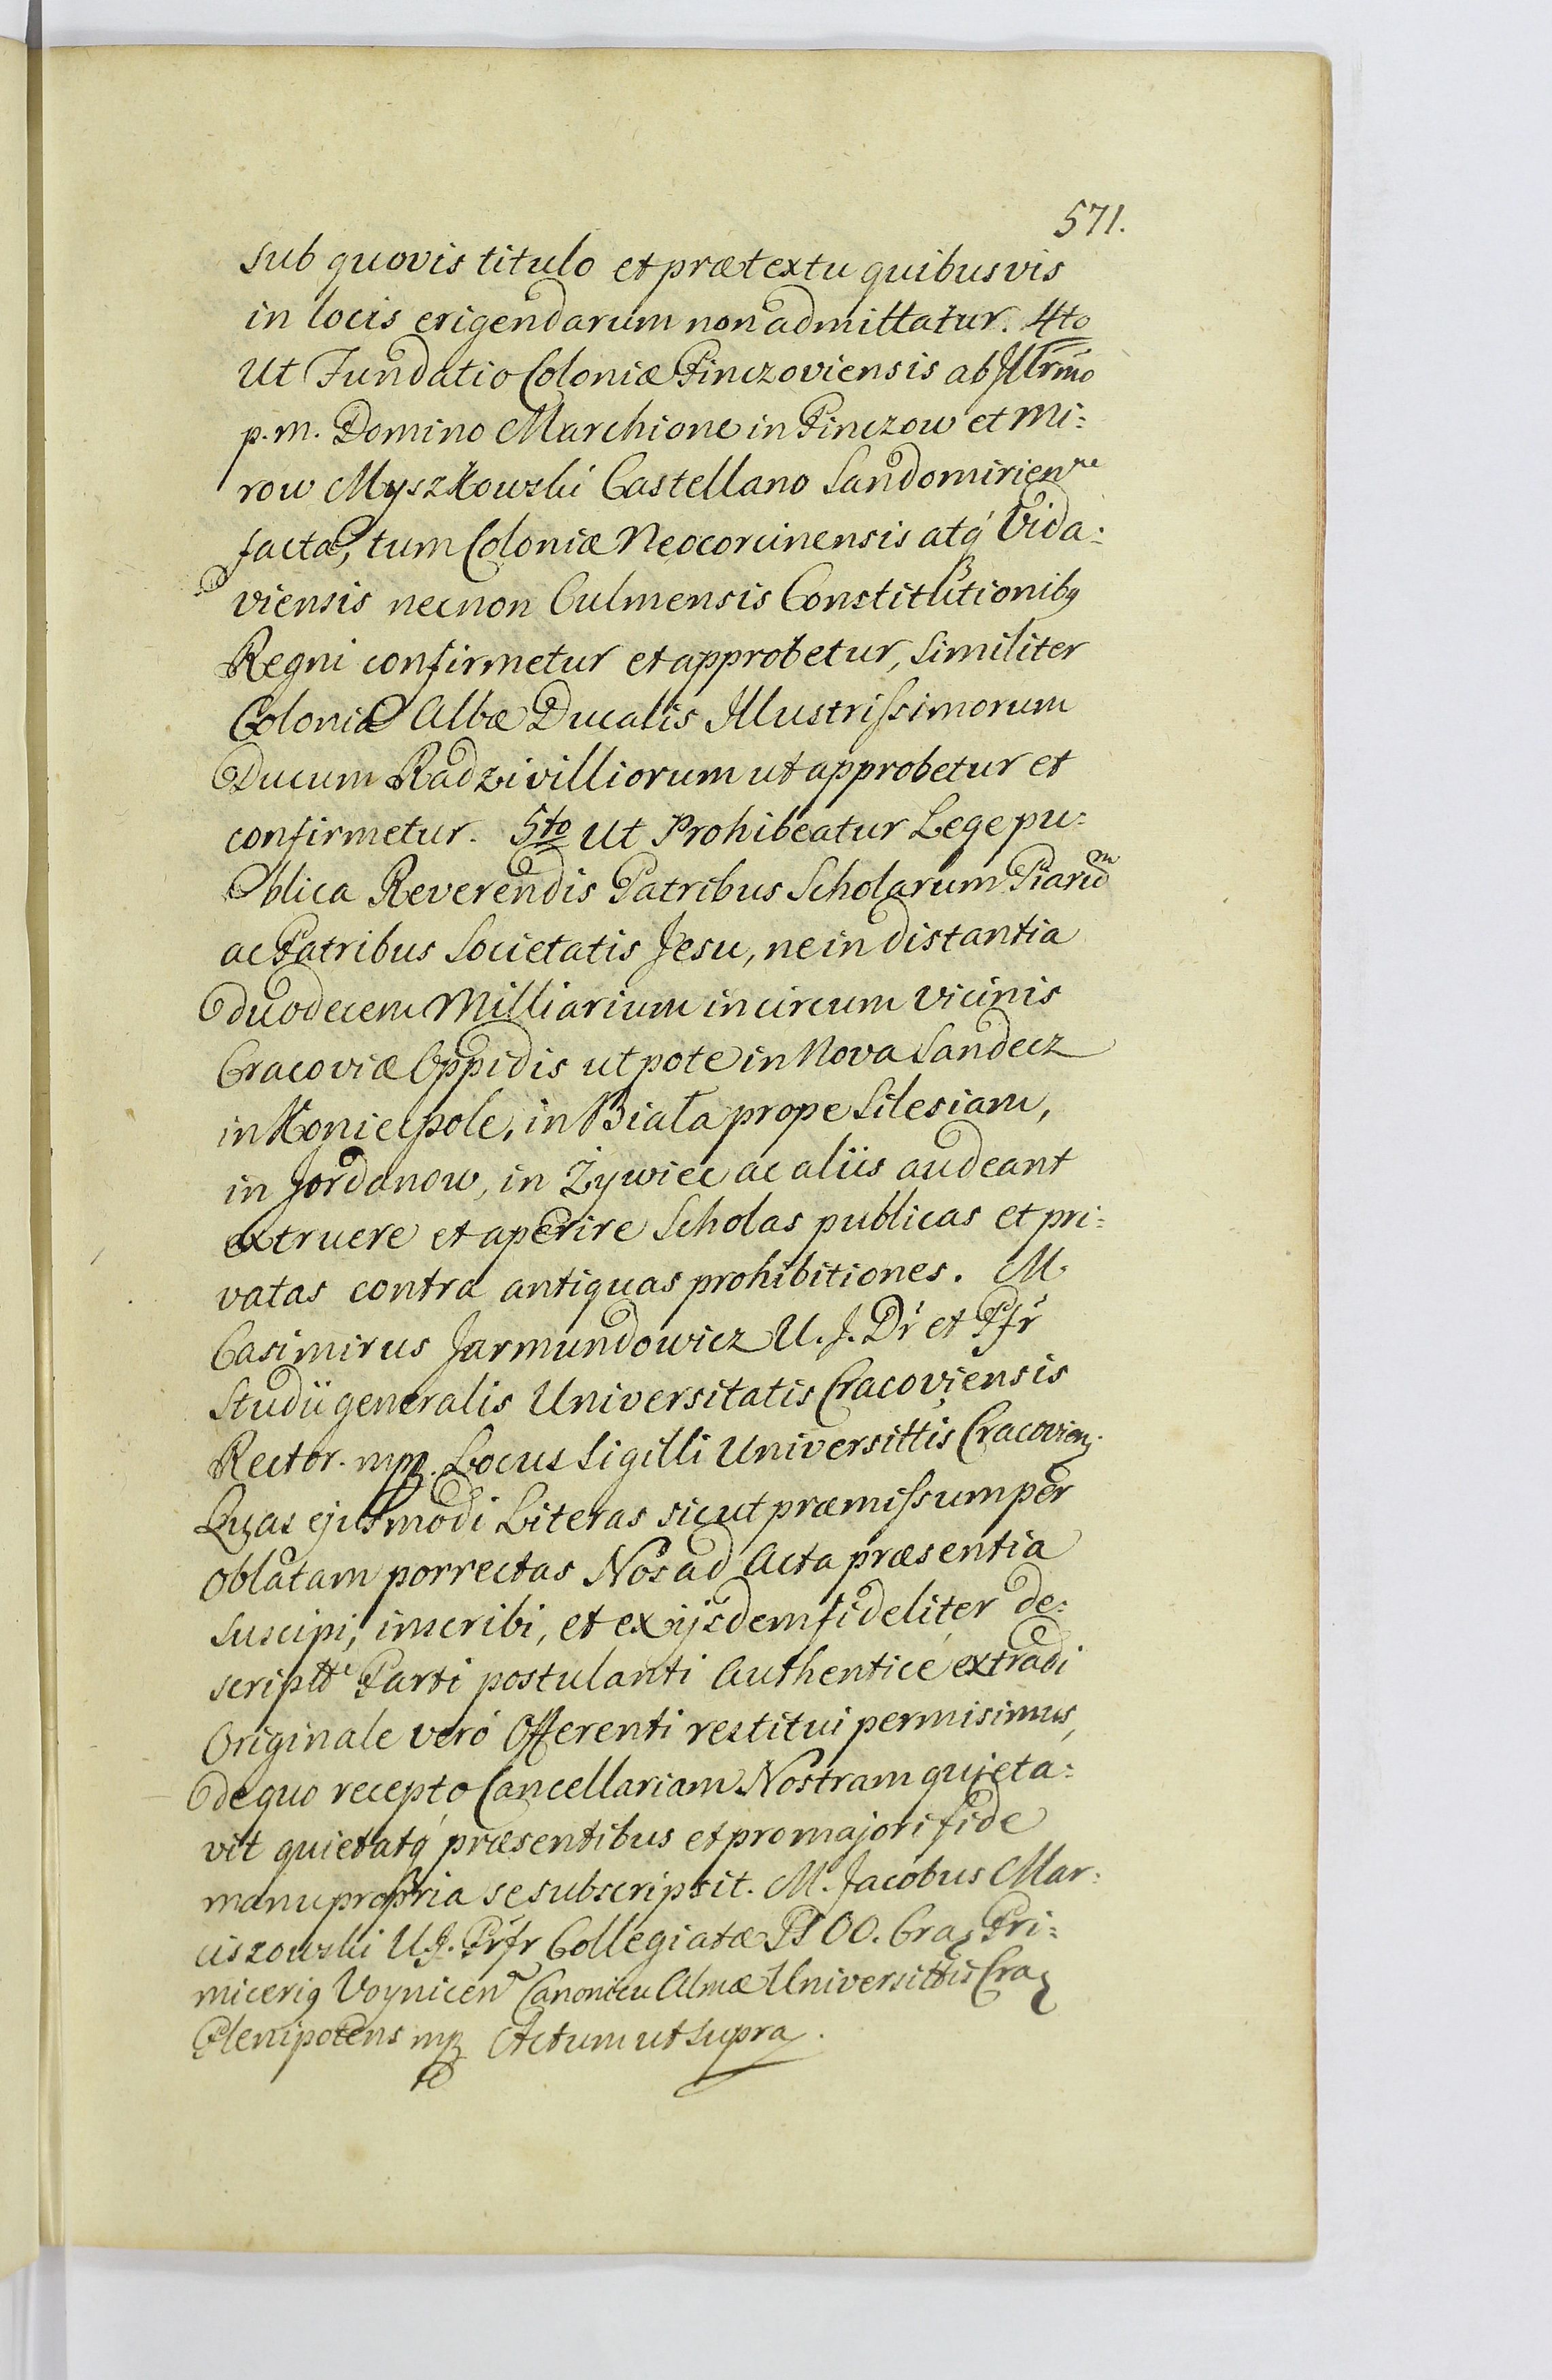 571.
sub quovis titulo et prætextu quibusvis
in locis erigendarum non admittatur. 4to
Ut Fundatio Coloniæ Pinczoviensis ab Illrmo
p. m. Domino Marchione in Pinczow et Mi:
row Myszkowski Castellano Sandomirien
facta, tum Coloniæ Neocorcinensis atq́ Vida:
viensis necnon Culmensis Constitutionibq
Regni confirmetur et approbetur, Similiter
Colonia Albæ Ducalis Illustrissimorum
Ducum Radziwilliorum ut approbetur et
confirmetur. 5to Ut Prohibeatur Lege pu:
blica Reverendis Patribus Scholarum Piarum
ac Patribus Societatis Jesu, ne in distantia
duodecem Milliarium in circum vicinis
Cracoviæ Oppidis utpote in Nova Sandecz
in Koniecpole, in Biała prope Silesiam,
in Jordanow, in Żywiec ac aliis audeant
extruere et aperire Scholas publicas et pri:
vatas contra antiquas prohibitiones. M.
Casimirus Jarmundowicz U. J. Dr et Pfr
Studii generalis Universitatis Cracoviensis
Rector. mpp. Locus Sigilli Universittis Cracovien.
Quas ejusmodi Literas sicut præmissum per
Oblatam porrectas Nos ad Acta præsentia
suscipi, inscribi, et ex ijsdem fideliter de:
scriptte Parti postulanti Authenticé extradi
Originale veró Offerenti restitui permisimus,
de quo recepto Cancellariam Nostram quieta:
vit quietatq́ præsentibus et pro majori fide
manu propria se subscripsit. M. Jacobus Mar:
ciszowski U. J. Prfr Collegiatæ SS OO. Crac Pri:
micerig Voynicen Canonicu Almæ Universittis Crac
Plenipotens mp Actum ut supra.